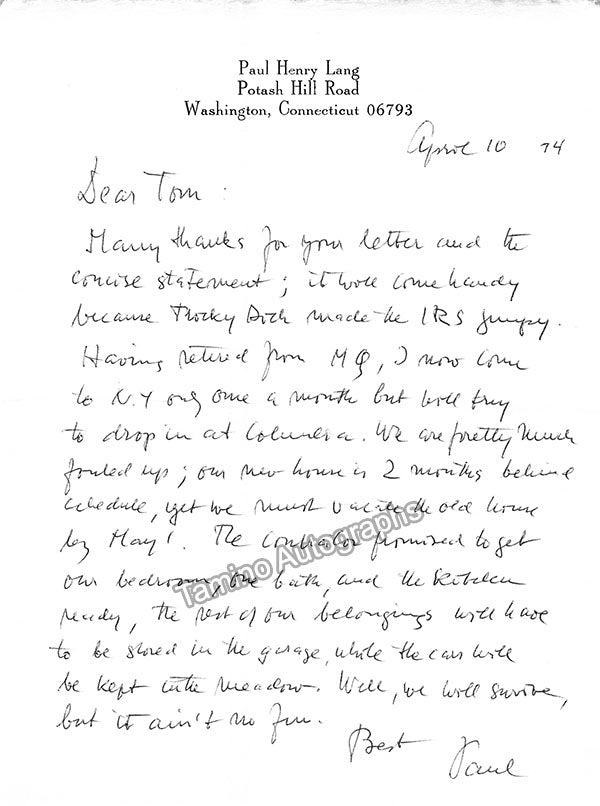 Paul Henry Lang
Potash Hill Road
Washington, Connecticut 06793
April 10 74
Dear Tom :
Many thanks for your letter and the
concise statement ; it will come handy
because made the IRS jumpy.
Having retired from MQ, I now come
to N.Y only once a month but will try
to drop in at Columbia. We are pretty much
fouled up ; our new house is 2 months behind
schedule, yet we must vacate the old house
by May 1. The contractor promised to get
our bedroom, one bath, and the kitchen
ready, the rest of our belongings will have
to be stored in the garage, while the cars will
be kept in the meadow. Well, we will survive,
but it ain't no fun.
Best Paul
Tamino Autographs